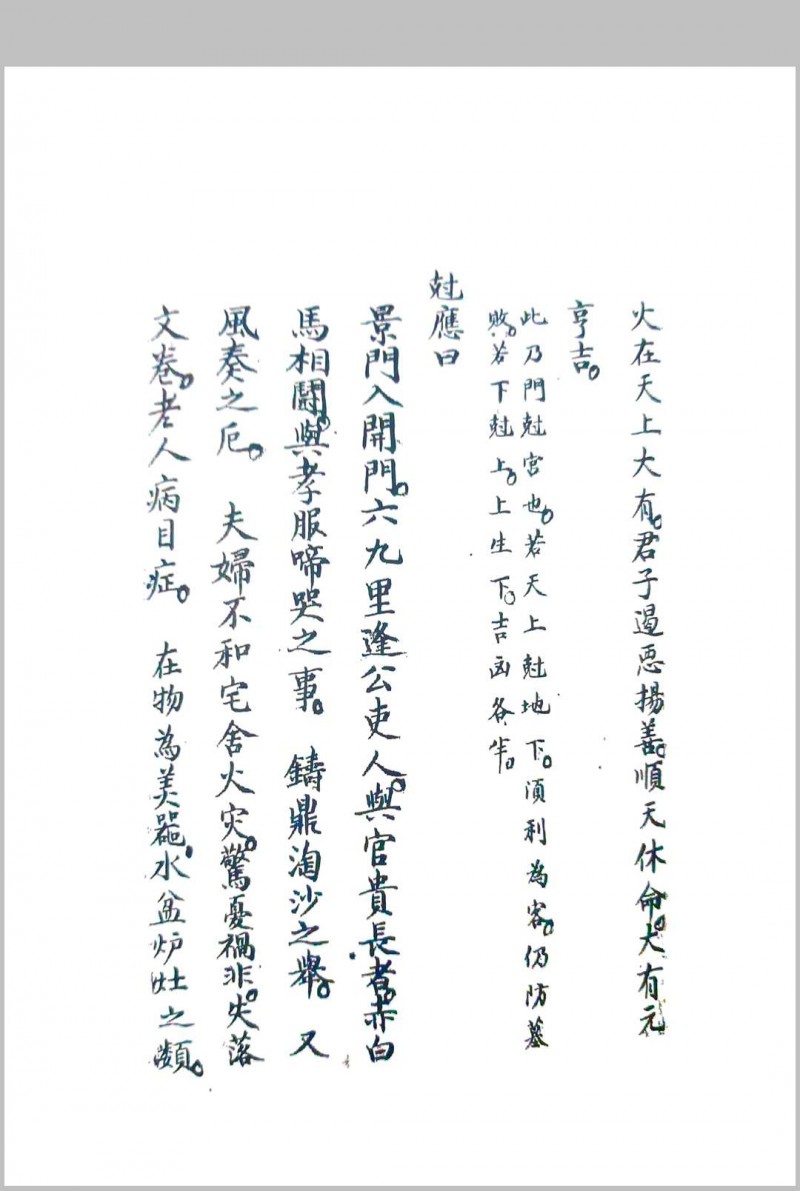 火在天上大有。君子遏恶揚善。順天休命。大有元
亨吉。
此乃門尅宮也。若天上尅地下。須利為客。仍防墓
敗。若下尅上。上生下。吉凶各半。
尅應曰
景門入開門。六九里逢公吏人。與官貴長者。赤白
馬相鬪。與孝服啼哭之事。 鑄鼎淘沙之舉。 又
風奏之厄。 夫婦不和宅舍火灾。驚憂禍非。失落
文卷。老人病目症。 在物為美器。水盆炉灶之類。